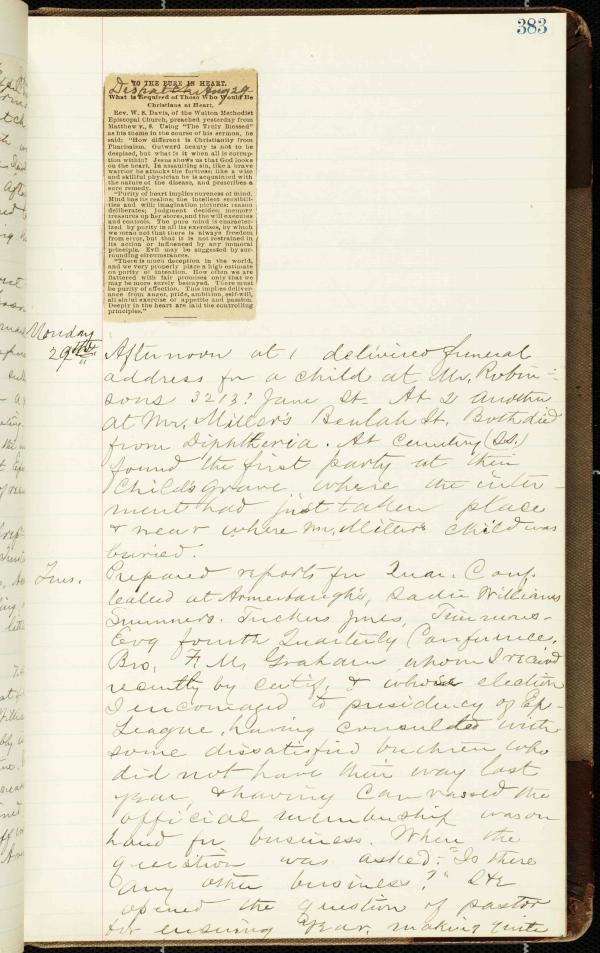 383
TO THE PURE IN HEART.
Dispatch Aug 29
What is Required of Those Who Would Be
Christians at Heart.
Rev. W. S. Davis, of the Walton Methodist
Episcopal Church, preached yesterday from
Matthew v., 8. Using "The Truly Blessed"
as his theme in the course of his sermon, he
said: "How different is Christianity from
Pharisaism. Outward beauty is not to be
despised, but what is it when all is corrup-
tion within? Jesus shows us that God looks
on the heart. In assaulting sin, like a brave
warrior he attacks the fortress; like a wise
and skillful physician he is acquainted with
the nature of the disease, and prescribes a
sure remedy.
"Purity of heart implies sureness of mind.
Mind has its realms; the intellect sensibili-
ties and will; imagination pictures; reason
deliberates; judgment decides; memory
treasures up her stores, and the will executes
and controls. The pure mind is character-
ized by purity in all its exercises, by which
we mean not that there is always freedom
from error, but that it is not restrained in
its action or influenced by any immoral
principle. Evil may be suggested by sur-
rounding circumstances.
"There is much deception in the world,
and we very properly place a high estimate
on purity of intention. How often we are
flattered with fair promises only that we
may be more surely betrayed. There must
be purity of affection. This implies deliver-
ance from anger, pride, ambition, self-will,
all sinful exercise of appetite and passion.
Deeply in the heart are laid the controlling
principles."
Monday
29th
Afternoon at 1 delivered funeral
address for a child at Mr. Robin-
sons 3213? Jane St. At 2 another
at Mr. Miller's Beulah St. Both died
from Diphtheria. At Cemetery (S.S.)
found the first party at their
Child's grave where the inter-
ment had just taken place
& near where Mr. Miller's child was
buried.
Tues.
Prepared reports for Quar. Conf.
Called at Armerbaugh's, Sadie Williams
Summers. Tuckers Jones, Timmons-
Evg fourth Quarterly Conference.
Bro. F. M. Graham whom I received
recently by certif. & whose election
I encouraged to presidency of Ep-
League, having consulted with
some dissatisfied brethren who
did not have their way last
year, & having canvassed the
official membership was on
hand for business. When the
question was asked: "Is there
any other business?" &
opened the question of pastor
for ensuing year, making quite